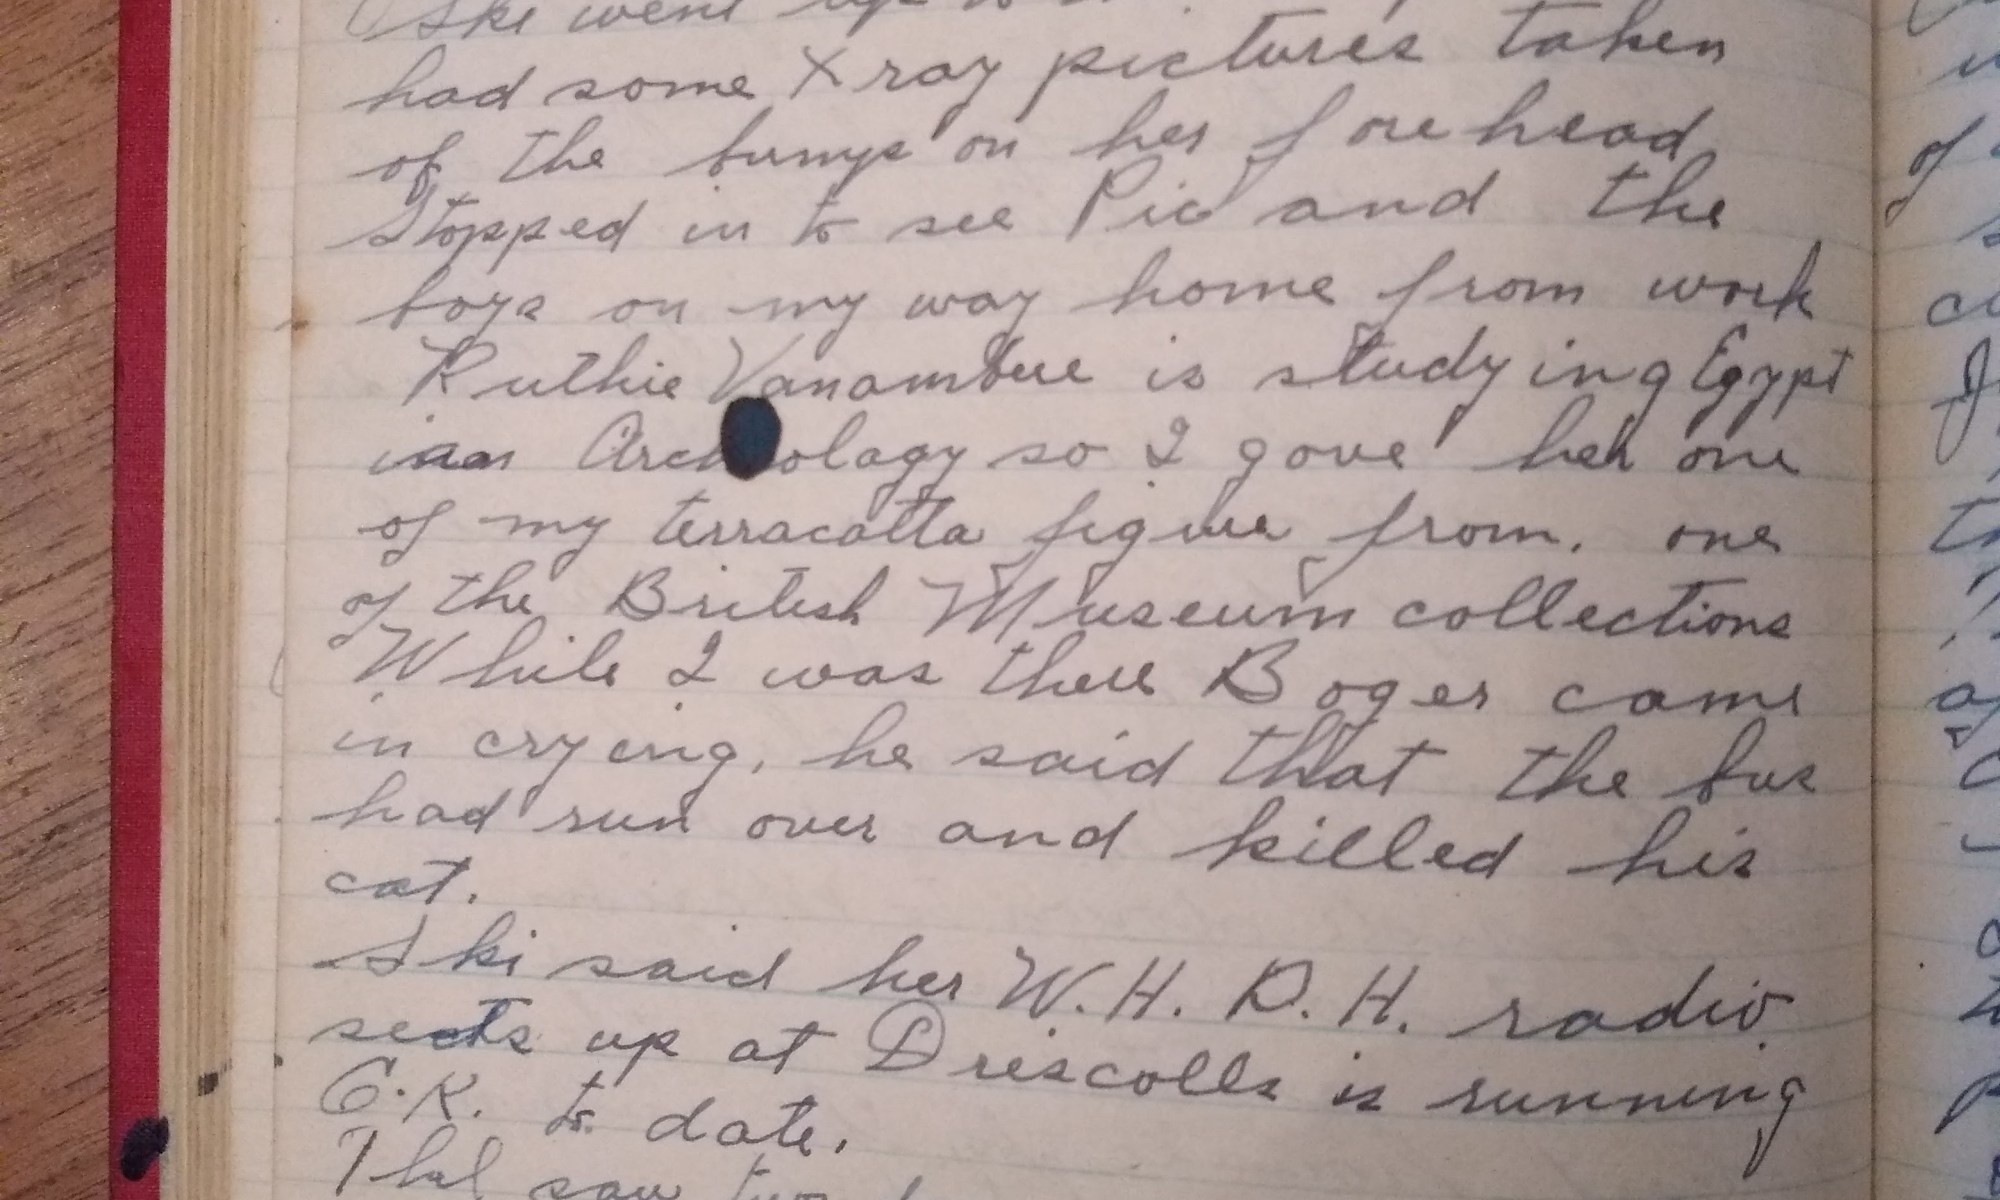 Ski went up to
had some X ray pictures taken
of the bumps on her fore head
Stopped in to see Pid and the
boys on my way home from work
Ruthie Vanambure is studying Egypt
ian Archology so I gave her one
of my terracotta figure from. one
of the British Museum collections
While I was there Boger came
in crying, he said that the bus
had run over and killed his
cat.
Ski said her W. H. D. H. radio
sects up at Driscolls is running
O.K. to date.
saw two
of